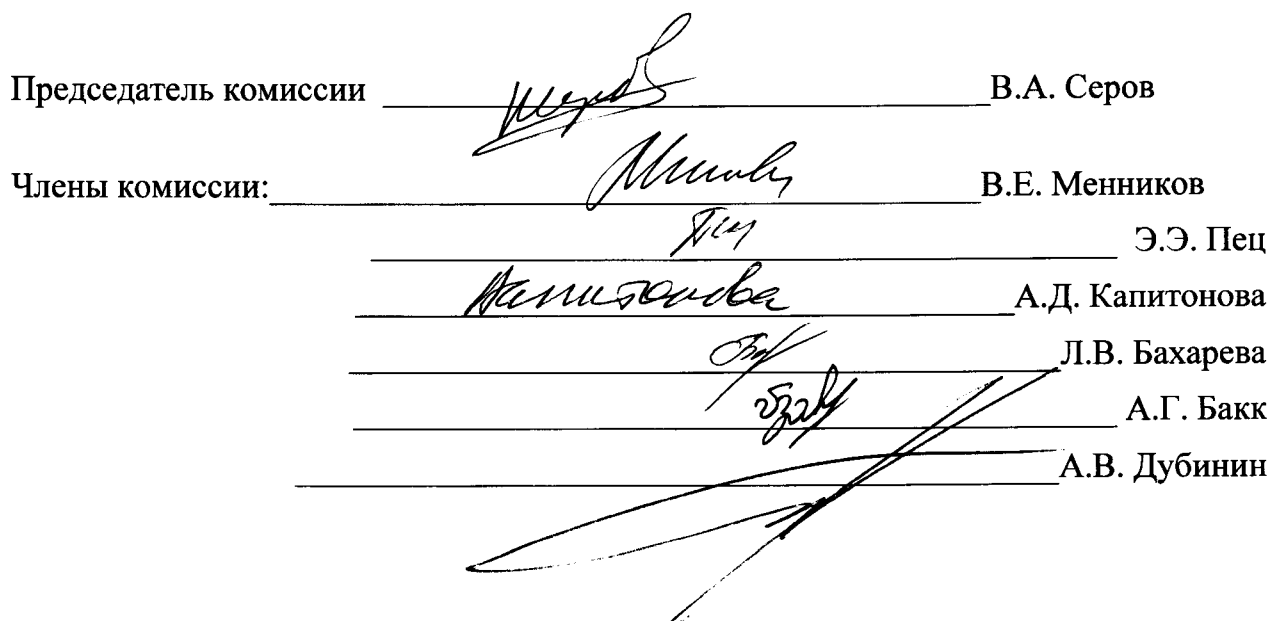 Председатель комиссии В.А. Серов
Члены комиссии: В.Е. Менников
Э.Э. Пец
Капитонова А.Д. Капитонова
Л.В. Бахарева
А.Г. Бакк
А.В. Дубинин